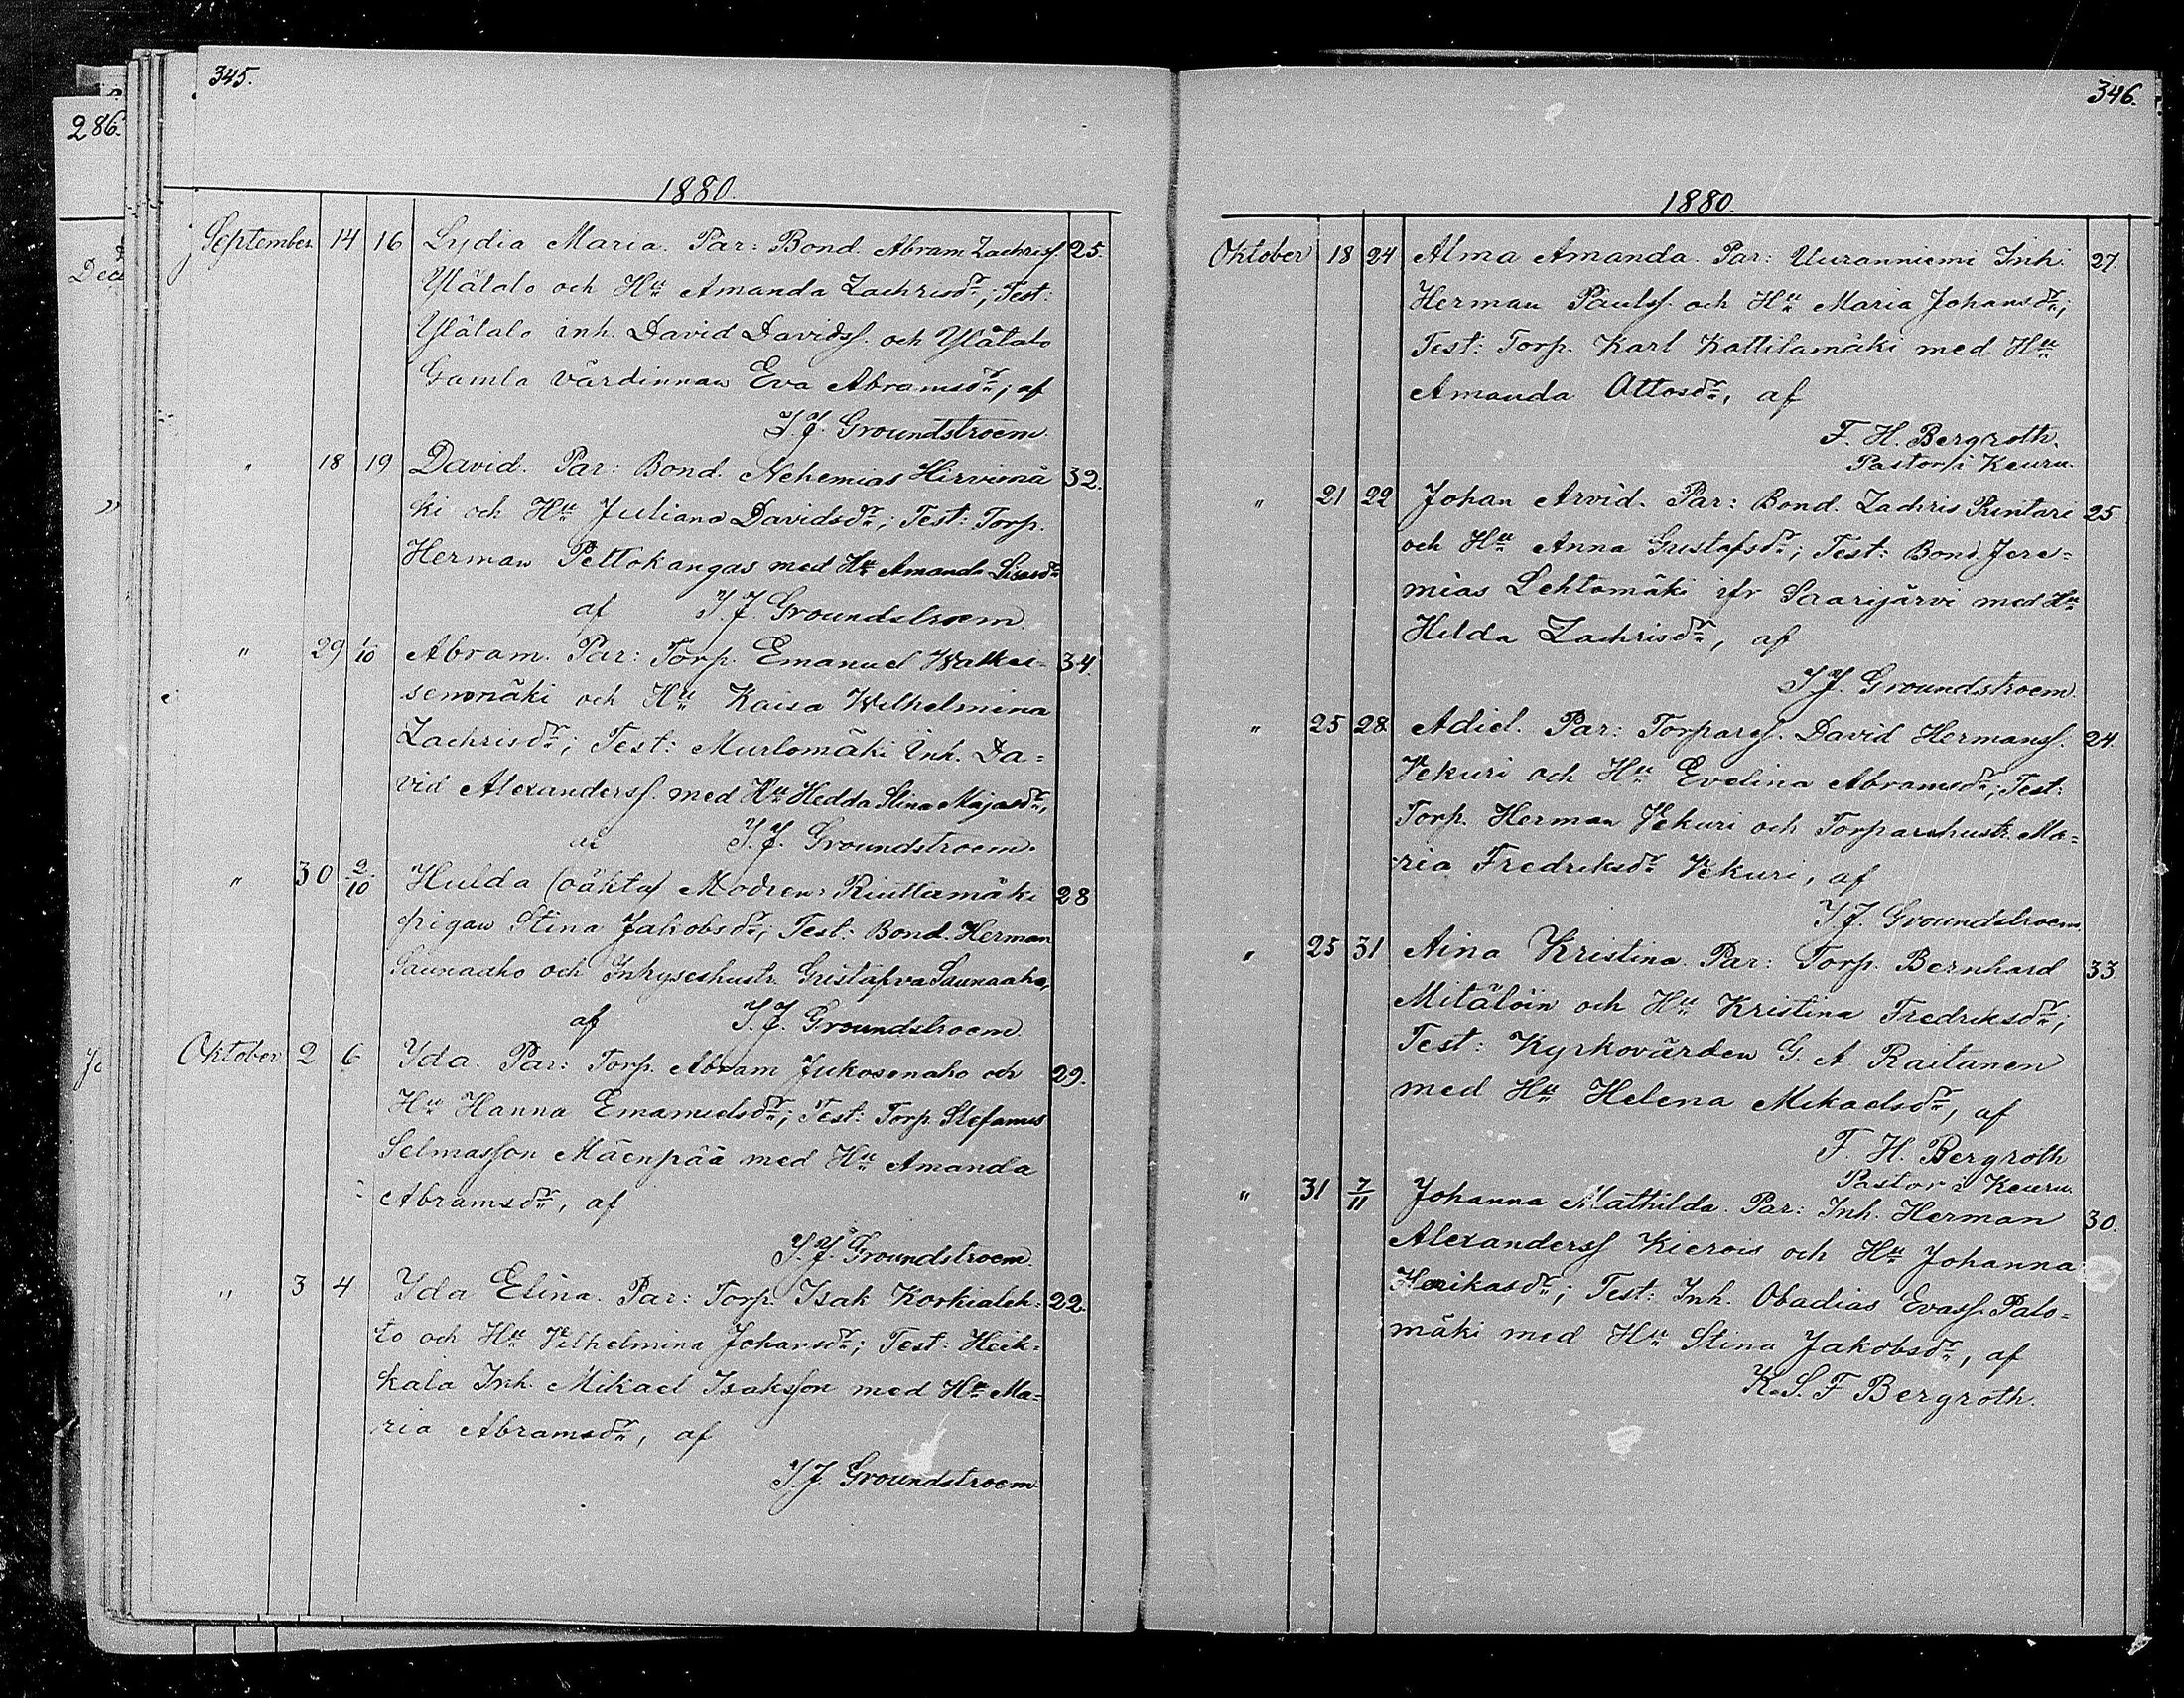 345.
286.
1880.
September 14 16 Lydia Maria. Par: Bond. Abram Zachriss. 25.
Ylätalo och Hu Amanda Zachrisdr; Test:
Ylätalo inh. David Davidss. och Ylätalo
Gamla värdinnan Eva Abramsdr; af
I. J. Groundstroem.
" 18 19 David. Par: Bond. Nehemias Hirvimä 32.
ki och Hu Juliana Davidsdr; Test: Torp.
Herman Peltokangas med Hu Amanda
af I. J. Groundstroem.
" 29 1/10 Abram. Par: Torp. Emanuel 34.
senmäki och Hu Kaisa Wilhelmina
Zachrisdr; Test: Murtomäki Inh. Da=
vid Alexanderss. med Hu Hedda Stina Majasdr,
af I. J. Groundstroem.
" 30 2/10 Hulda (oäkta) Modren: Riuttamäki 28
pigan Stina Jakobsdr; Test: Bond. Herman
Saunaaho och Inhyseshustr. Gustafva Saunaaho,
af I. J. Groundstroem.
Oktober 2 6 Yda. Par: Torp. Abram Jukosenaho och 29.
Hu Hanna Emanuelsdr; Test: Torp. Stefanus
Selmasson Mäenpää med Hu Amanda
Abramsdr, af
I. J. Groundstroem.
" 3 4 Yda Elina. Par: Torp. Isak Korkialeh= 22.
to och Hu Vilhelmina Johansdr; Test: Heik=
kala Inh. Mikael Isaksson med Hu Ma=
ria Abramsdr, af
I. J. Groundstroem
346.
1880.
Oktober 18 24 Alma Amanda. Par: Uuranniemi Inh. 27.
Herman Paulss. och Hu Maria Johansdr;
Test: Torp. Karl Kattilamäki med Hu
Amanda Ottosdr, af
F. H. Bergroth.
Pastor i Keuru.
" 21 22 Johan Arvid. Par: Bond. Zachris Rintare 25.
och Hu Anna Gustafsdr; Test: Bond. Jere=
mias Lehtomäki ifr Saarijärvi med Hu
Hilda Zachrisdr, af
I. J. Groundstroem.
" 25 28. Adiel. Par: Torpares. David Hermanss. 24.
Vekuri och Hu Evelina Abramsdr; Test:
Torp. Herman Vekuri och Torparehustr. Ma=
ria Fredriksdr Vekuri, af
I. J. Groundstroem.
" 25 31 Aina Kristina. Par: Torp. Bernhard 33
Mitälöin och Hu Kristina Fredriksdr;
Test: Kyrkovärden G. A. Raitanen
med Hu Helena Mikaelsdr, af
F. H. Bergroth
Pastor i Keuru.
" 31 7/11 Johanna Mathilda. Par: Inh. Herman 30.
Alexanderss Kierois och Hu Johanna
Henriksdr; Test: Inh. Obadias Evass. Palo=
mäki med Hu Stina Jakobsdr, af
K. S. F. Bergroth.